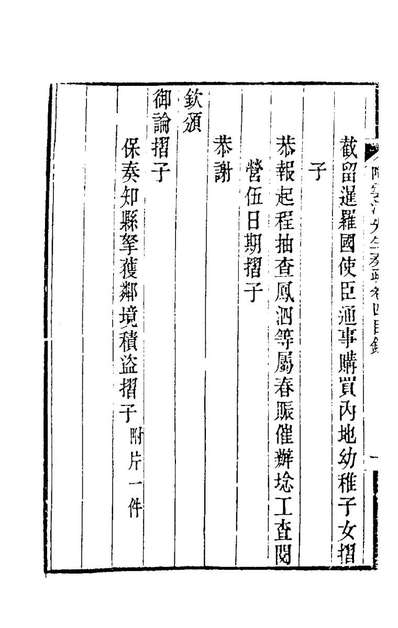 陶雲汀先生奏疏卷四目錄 一
截留暹羅國使臣通事購買內地幼稚子女摺
子
恭報起程抽查鳳泗等屬春賑催辦埝工查閱
營伍日期摺子
恭謝
欽頒
御論摺子
保奏知縣拏獲鄰境積盜摺子 附片一件